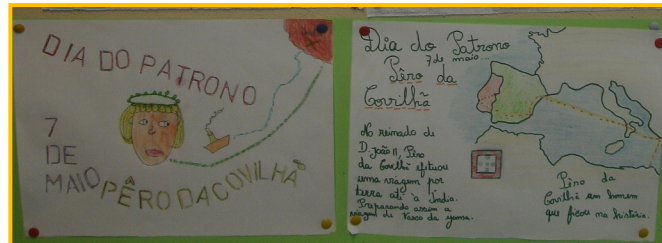 DIA DO PATRONO
7
DE
MAIO
PÊRO DA COVILHÃ
Dia do Patrono
7 de maio...
Pêro da
Covilhã
No reinado de
D. João II, Pêro
da Covilhã efetuou
uma viagem por
terra até à Índia.
Preparando assim a
viagem de Vasco da gama.
Pêro da
Covilhã um homem
que ficou na história.